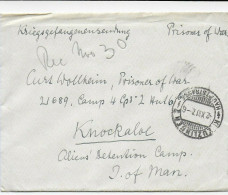 Kriegsgefangenensendung Prisoner of War
Curt Wollheim, Prisoner of War
21689, Camp 4 Cps 2 Hut 6
Knockaloe
Aliens' Detention Camp.
I. of Man.